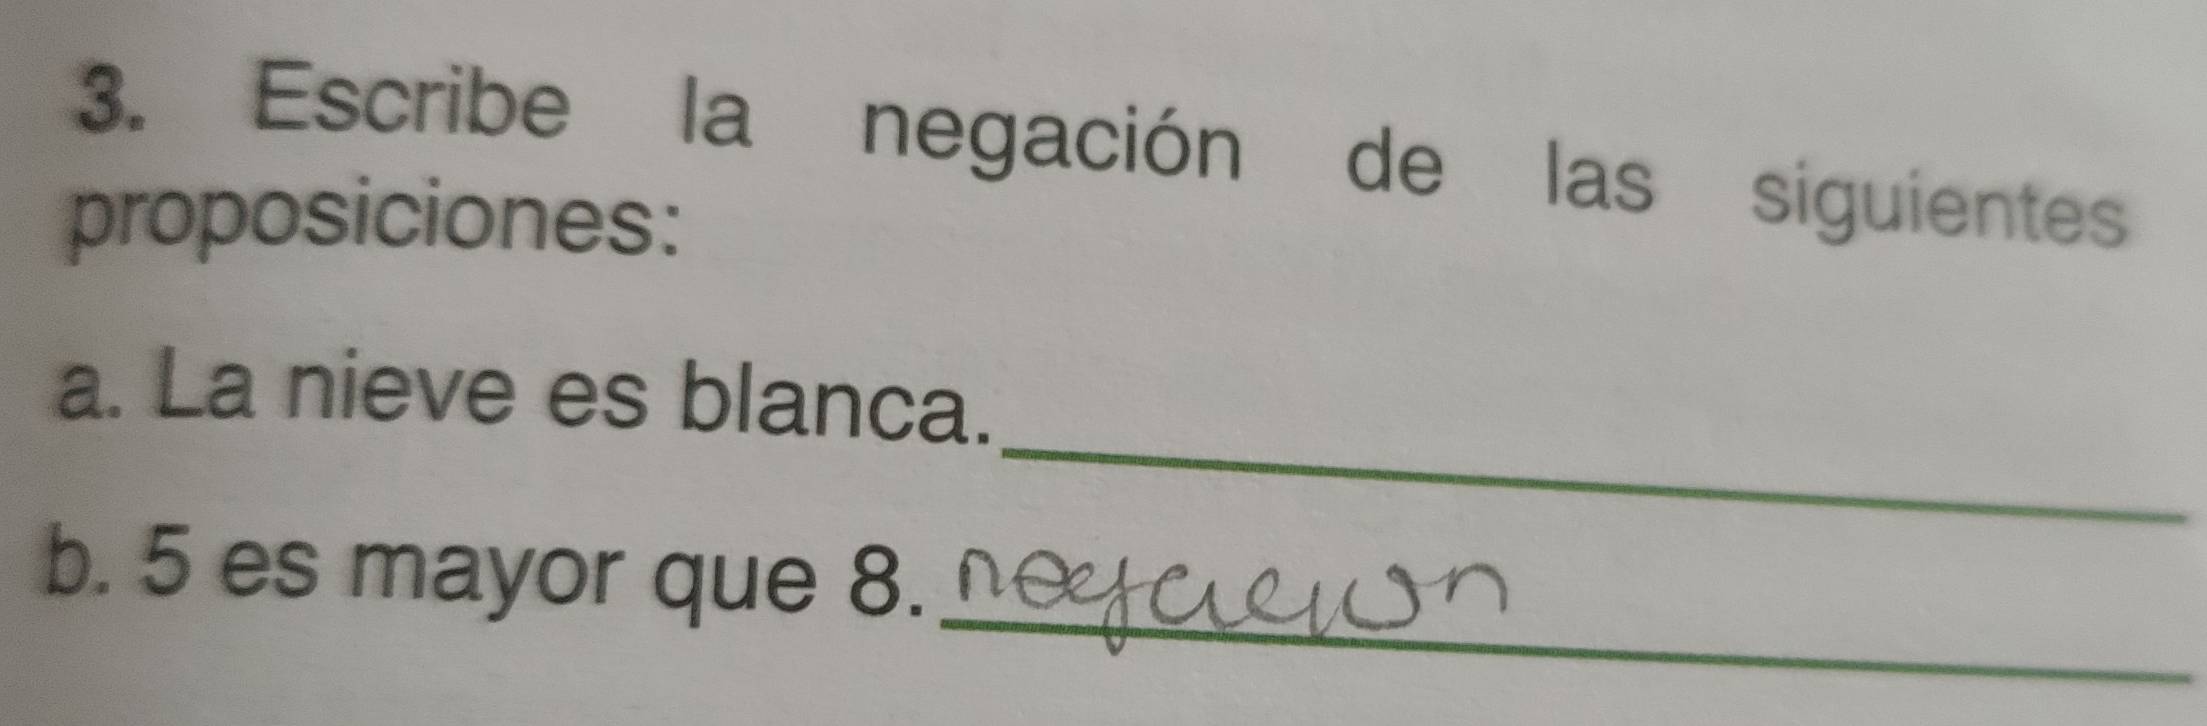 3. Escribe la negación de las siguientes
proposiciones:
a. La nieve es blanca.
b. 5 es mayor que 8. negación